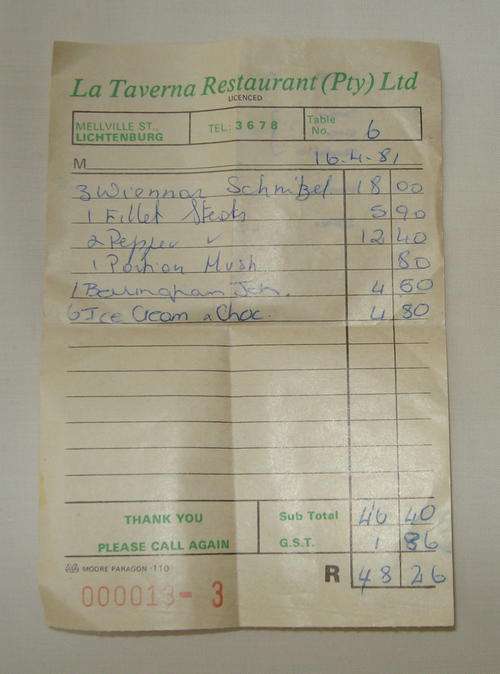 La Taverna Restaurant (Pty) Ltd
LICENCED
MELLVILLE ST., LICHTENBURG
TEL: 3678
Table No. 6
M 16.4.81
3 Wiennar Schnitzel 18 00
1 Fillet Steak 5 90
2 Pepper ✓ 12 40
1 Portion Mush 80
1 Bellingham Joh. 4 50
6 Ice Cream & Choc. 4 80
THANK YOU Sub Total 46 40
PLEASE CALL AGAIN G.S.T. 1 86
MOORE PARAGON -110 R 48 26
000013- 3